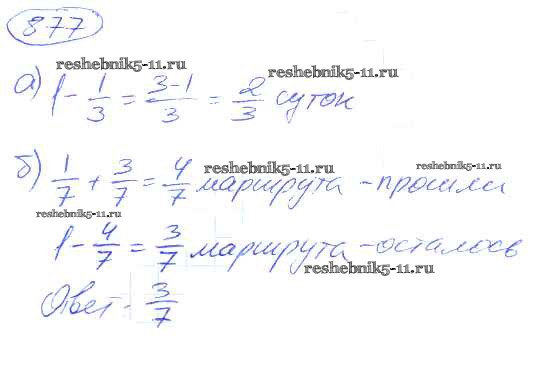 877
reshebnik5-11.ru
reshebnik5-11.ru
а) 1 - 1/3 = (3-1)/3 = 2/3 суток
reshebnik5-11.ru reshebnik5-11.ru
б) 1/7 + 3/7 = 4/7 маршрута - прошли
reshebnik5-11.ru
1 - 4/7 = 3/7 маршрута - осталось
reshebnik5-11.ru
Ответ - 3/7